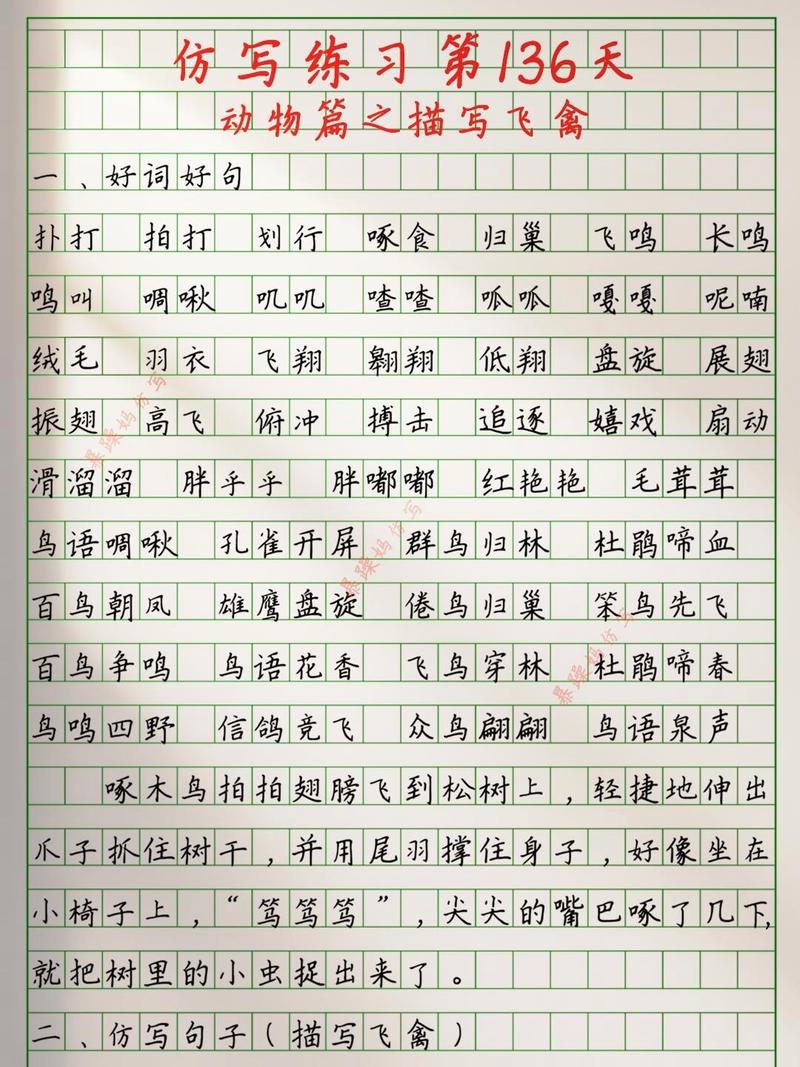 仿写练习第136天
动物篇之描写飞禽
一、好词好句
扑打 拍打 划行 啄食 归巢 飞鸣 长鸣
鸣叫 啁啾 叽叽 喳喳 呱呱 嘎嘎 呢喃
绒毛 羽衣 飞翔 翱翔 低翔 盘旋 展翅
振翅 高飞 俯冲 搏击 追逐 嬉戏 扇动
滑溜溜 胖乎乎 胖嘟嘟 红艳艳 毛茸茸
鸟语啁啾 孔雀开屏 群鸟归林 杜鹃啼血
百鸟朝凤 雄鹰盘旋 倦鸟归巢 笨鸟先飞
百鸟争鸣 鸟语花香 飞鸟穿林 杜鹃啼春
鸟鸣四野 信鸽竞飞 众鸟翩翩 鸟语泉声
啄木鸟拍拍翅膀飞到松树上，轻捷地伸出
爪子抓住树干，并用尾羽撑住身子，好像坐在
小椅子上，“笃笃笃”，尖尖的嘴巴啄了几下，
就把树里的小虫捉出来了。
二、仿写句子（描写飞禽）
暴躁妈仿写
暴躁妈仿写
暴躁妈仿写